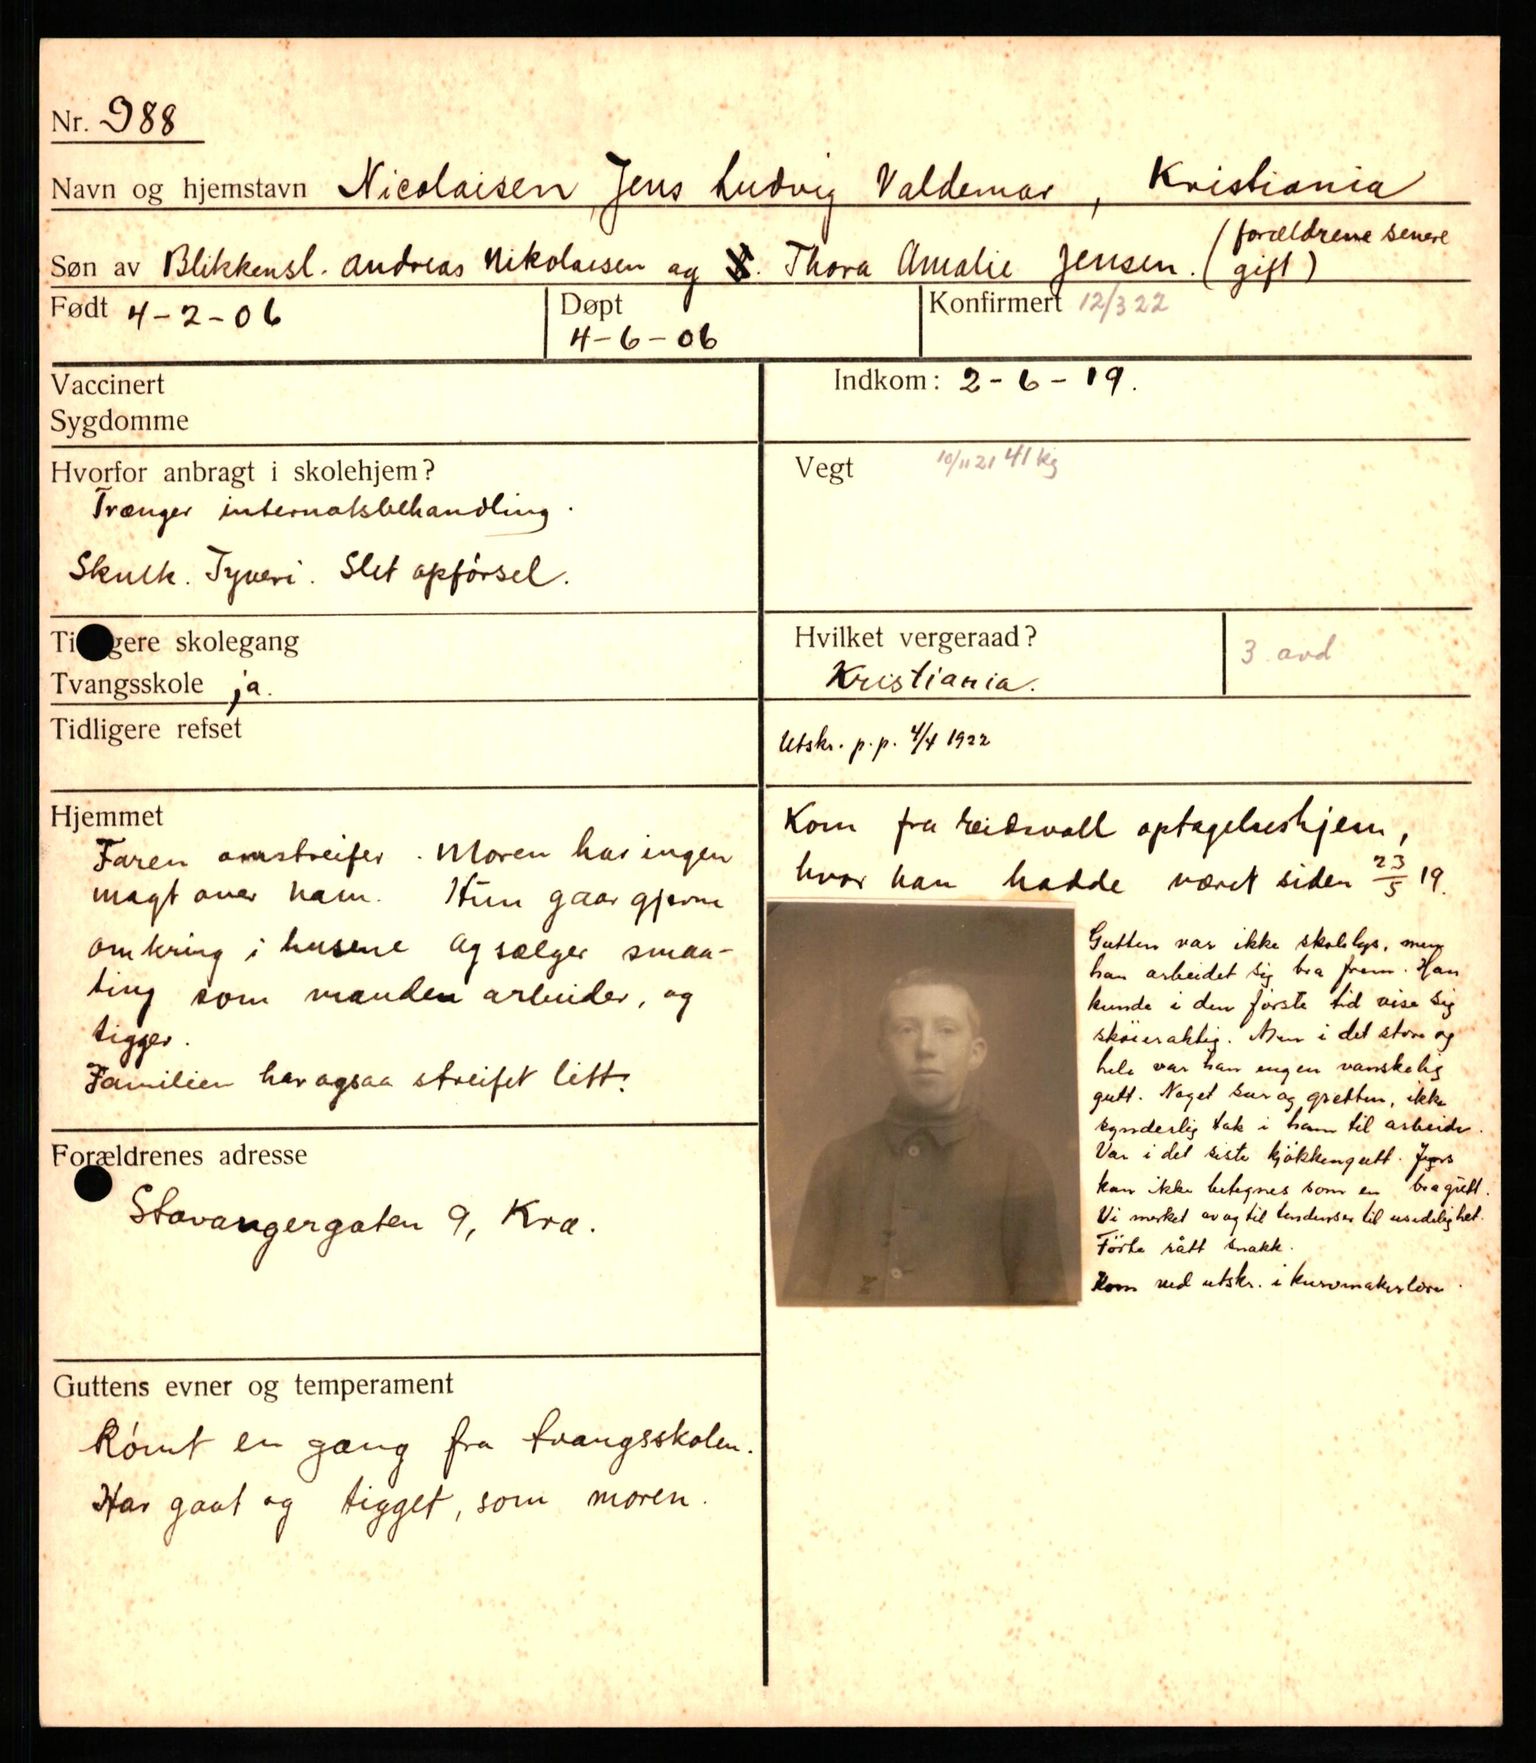 Nr. 988
Navn og hjemstavn Nicolaisen, Jens Ludvig Valdemar, Kristiania
Søn av Blikkensl. Andreas Nikolaisen og Thora Amalie Jensen. (forældrene senere
gift)
Født 4-2-06
Døpt
4-6-06
Konfirmert 12/3 22
Vaccinert
Sygdomme
Indkom: 2-6-19.
Hvorfor anbragt i skolehjem?
Trænger internatsbehandling.
Skulk. Tyveri. Slet opførsel.
Vegt 10/11 21 41 kg
Ti gere skolegang
Tvangsskole ja.
Hvilket vergeraad?
Kristiania.
3 avd
Tidligere refset
Utskr. p.p. 4/4 1922
Hjemmet
Faren omstreifer. Moren har ingen
magt over ham. Hun gaar gjerne
omkring i husene og sælger smaa-
ting som manden arbeider, og
tigger.
Familien har ogsaa streifet litt.
Kom fra Eidsvoll optagelseshjem,
hvor han hadde været siden 23/5 19.
Gutten var ikke skolelys, men
han arbeidet sig bra frem. Han
kunde i den første tid vise sig
skøieraktig. Men i det store og
hele var han ingen vanskelig
gutt. Noget sur og gretten, ikke
synderlig tak i ham til arbeide.
Var i det siste kjøkkengutt. Jens
kan ikke betegnes som en bra gutt.
Vi merket av og til tendenser til usedelighet.
Førte rått snakk.
Kom ved utskr. i kurvmakerlære.
Forældrenes adresse
Stavangergaten 9, Kra.
Guttens evner og temperament
Rømt en gang fra tvangsskolen.
Har gaat og tigget, som moren.